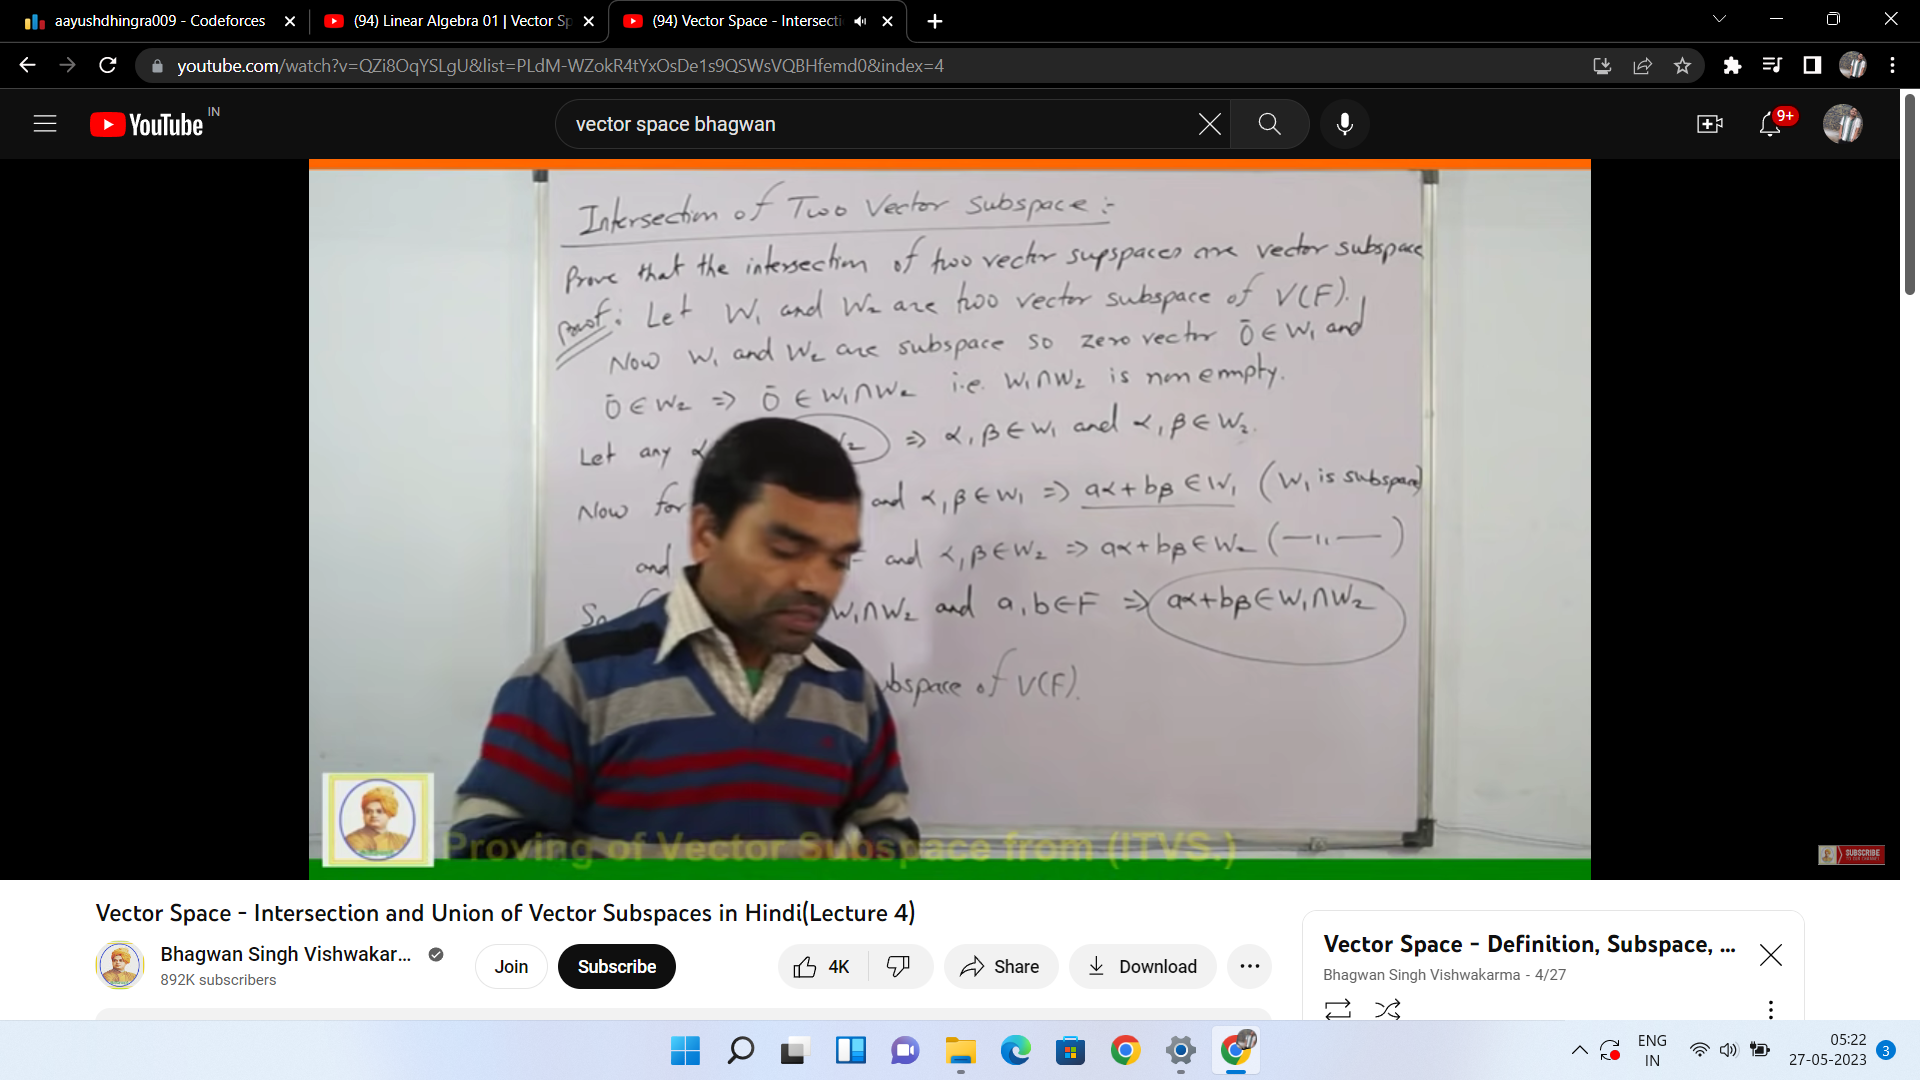 aayushdhingra009 - Codeforces
(94) Linear Algebra 01 | Vector Sp
(94) Vector Space - Intersecti
youtube.com/watch?v=QZi8OqYSLgU&list=PLdM-WZokR4tYxOsDe1s9QSWsVQBHfemd0&index=4
YouTube IN
vector space bhagwan
9+
Intersection of Two Vector Subspace :-
Prove that the intersection of two vector supspaces are vector subspace
Proof : Let W₁ and W₂ are two vector subspace of V(F).
Now W₁ and W₂ are subspace so zero vector 0̄ ∈ W₁ and
0̄ ∈ W₂ ⇒ 0̄ ∈ W₁∩W₂ i.e. W₁∩W₂ is non empty.
Let any α ₂ ⇒ α, β ∈ W₁ and α, β ∈ W₂.
Now for and α, β ∈ W₁ ⇒ aα + bβ ∈ W₁ (W₁ is subspace)
and and α, β ∈ W₂ ⇒ aα + bβ ∈ W₂ (—,,—)
So W₁∩W₂ and a, b ∈ F ⇒ aα + bβ ∈ W₁∩W₂
ubspace of V(F).
Proving of Vector Subspace from (ITVS.)
SUBSCRIBE
Vector Space - Intersection and Union of Vector Subspaces in Hindi(Lecture 4)
Bhagwan Singh Vishwakar...
892K subscribers
Join
Subscribe
4K
Share
Download
Vector Space - Definition, Subspace, ...
Bhagwan Singh Vishwakarma - 4/27
ENG
IN
05:22
27-05-2023
3